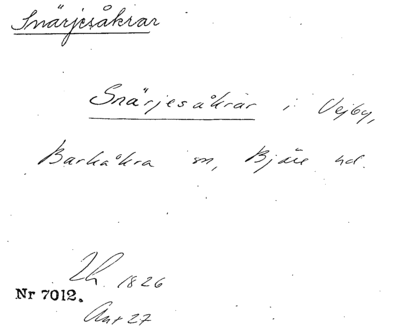 Snärjesåkrar
Snärjesåkrar i Vejby,
Barkåkra sn, Bjäre hd.
Lh. 1826
Nr 7012.
Ant 27